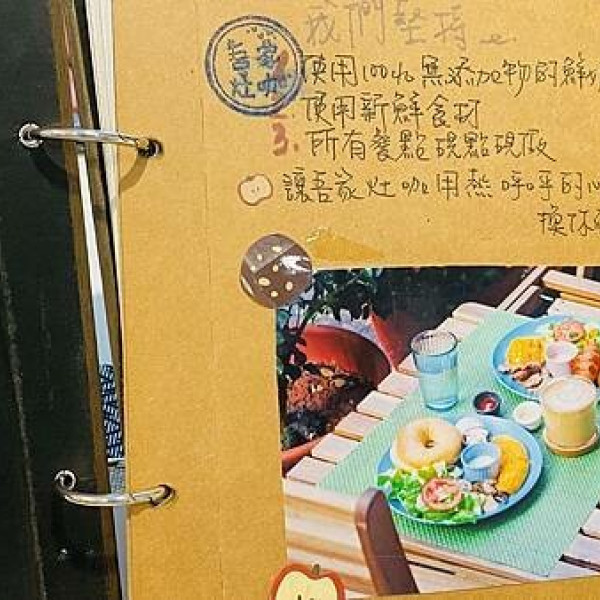 我們堅持
吾家
灶咖
使用100%無添加物的鮮
2. 使用新鮮食材
3. 所有餐點現點現做
讓吾家灶咖用熱呼呼的
換你